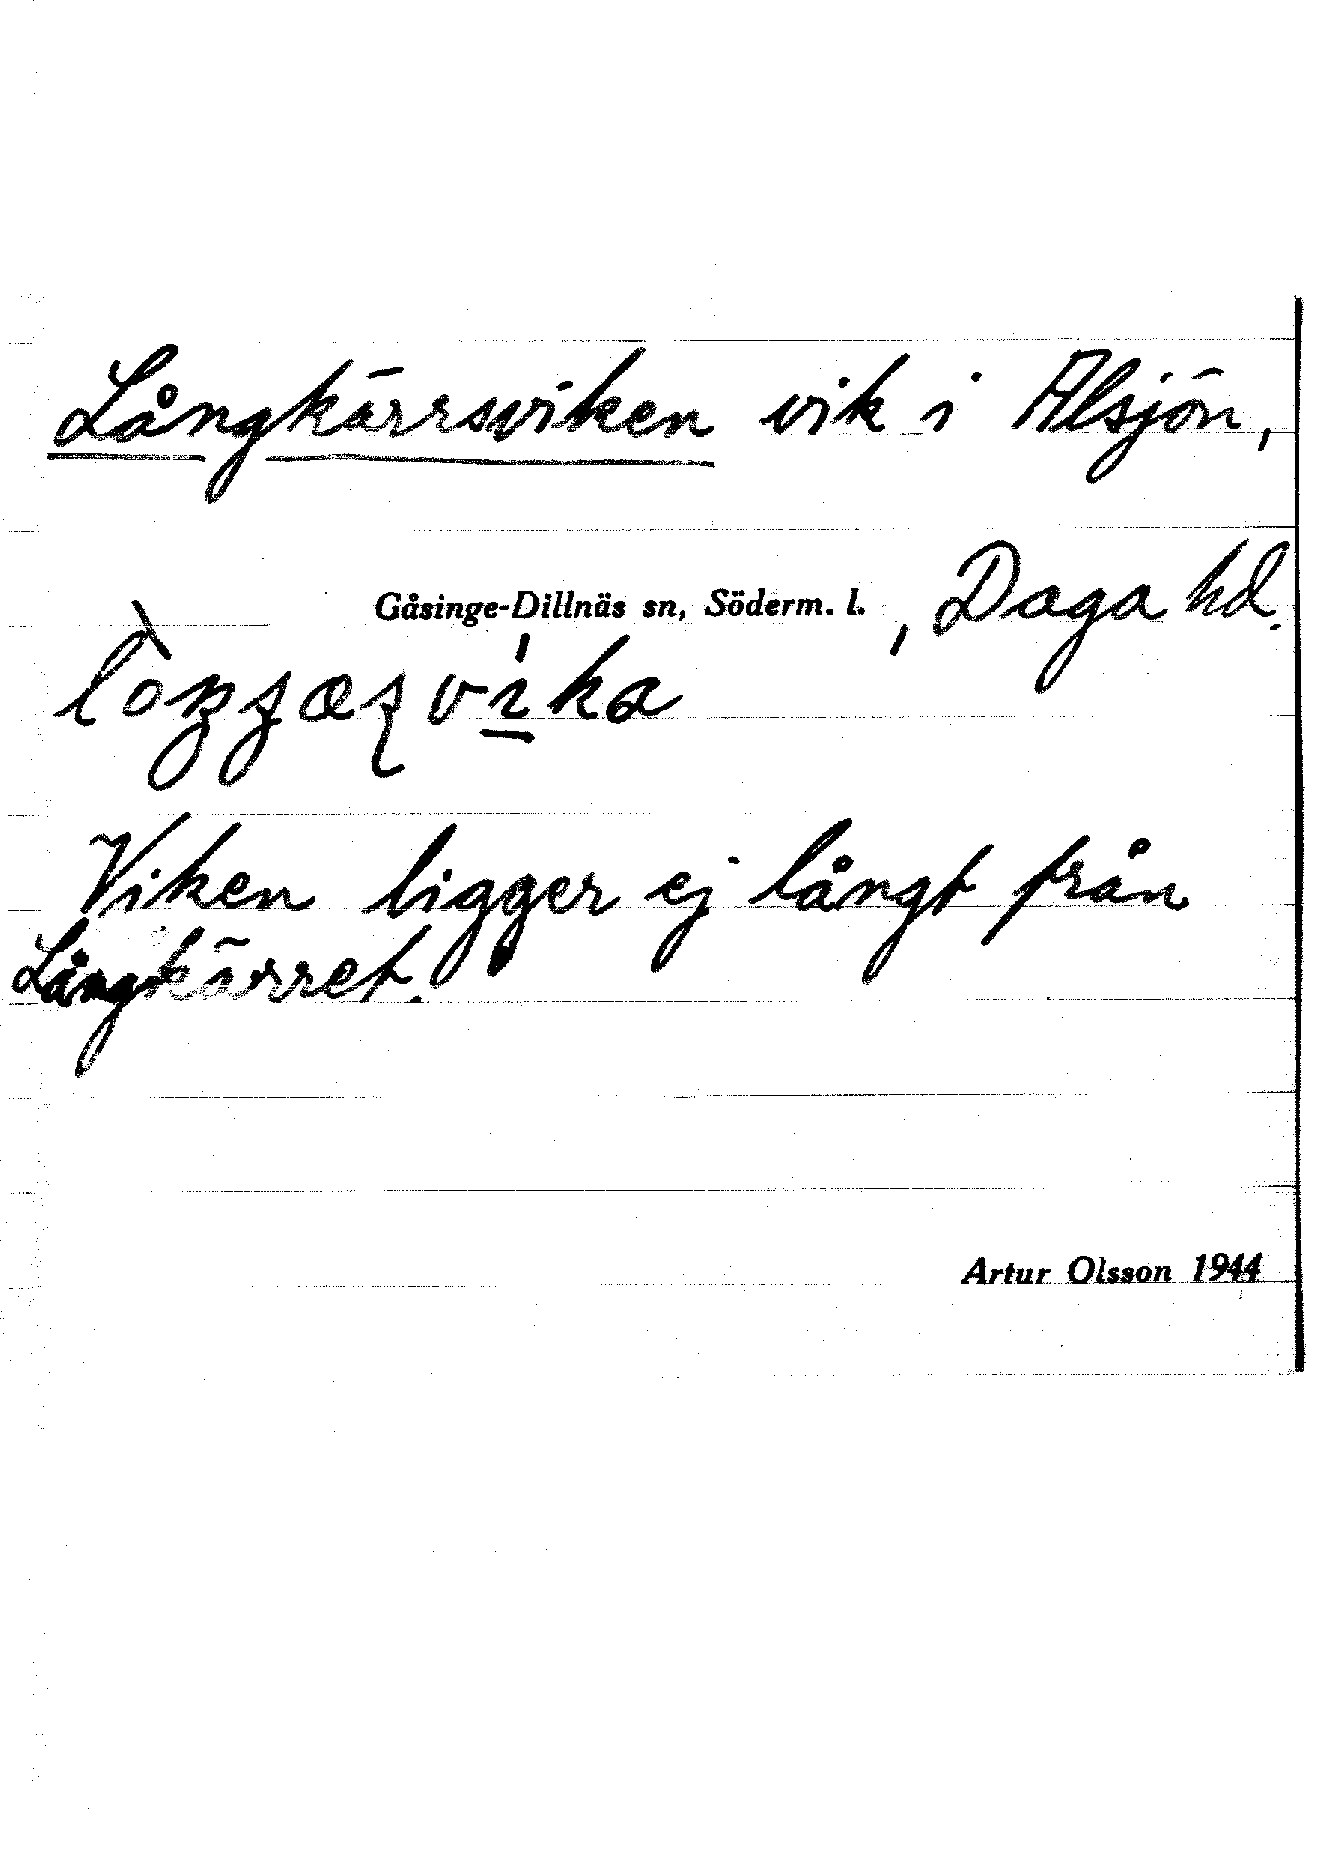 Långkärrsviken vik i Alsjön,
Gåsinge-Dillnäs sn, Söderm. l. , Daga hd.
Viken ligger ej långt från
Långkärret.
Artur Olsson 1944